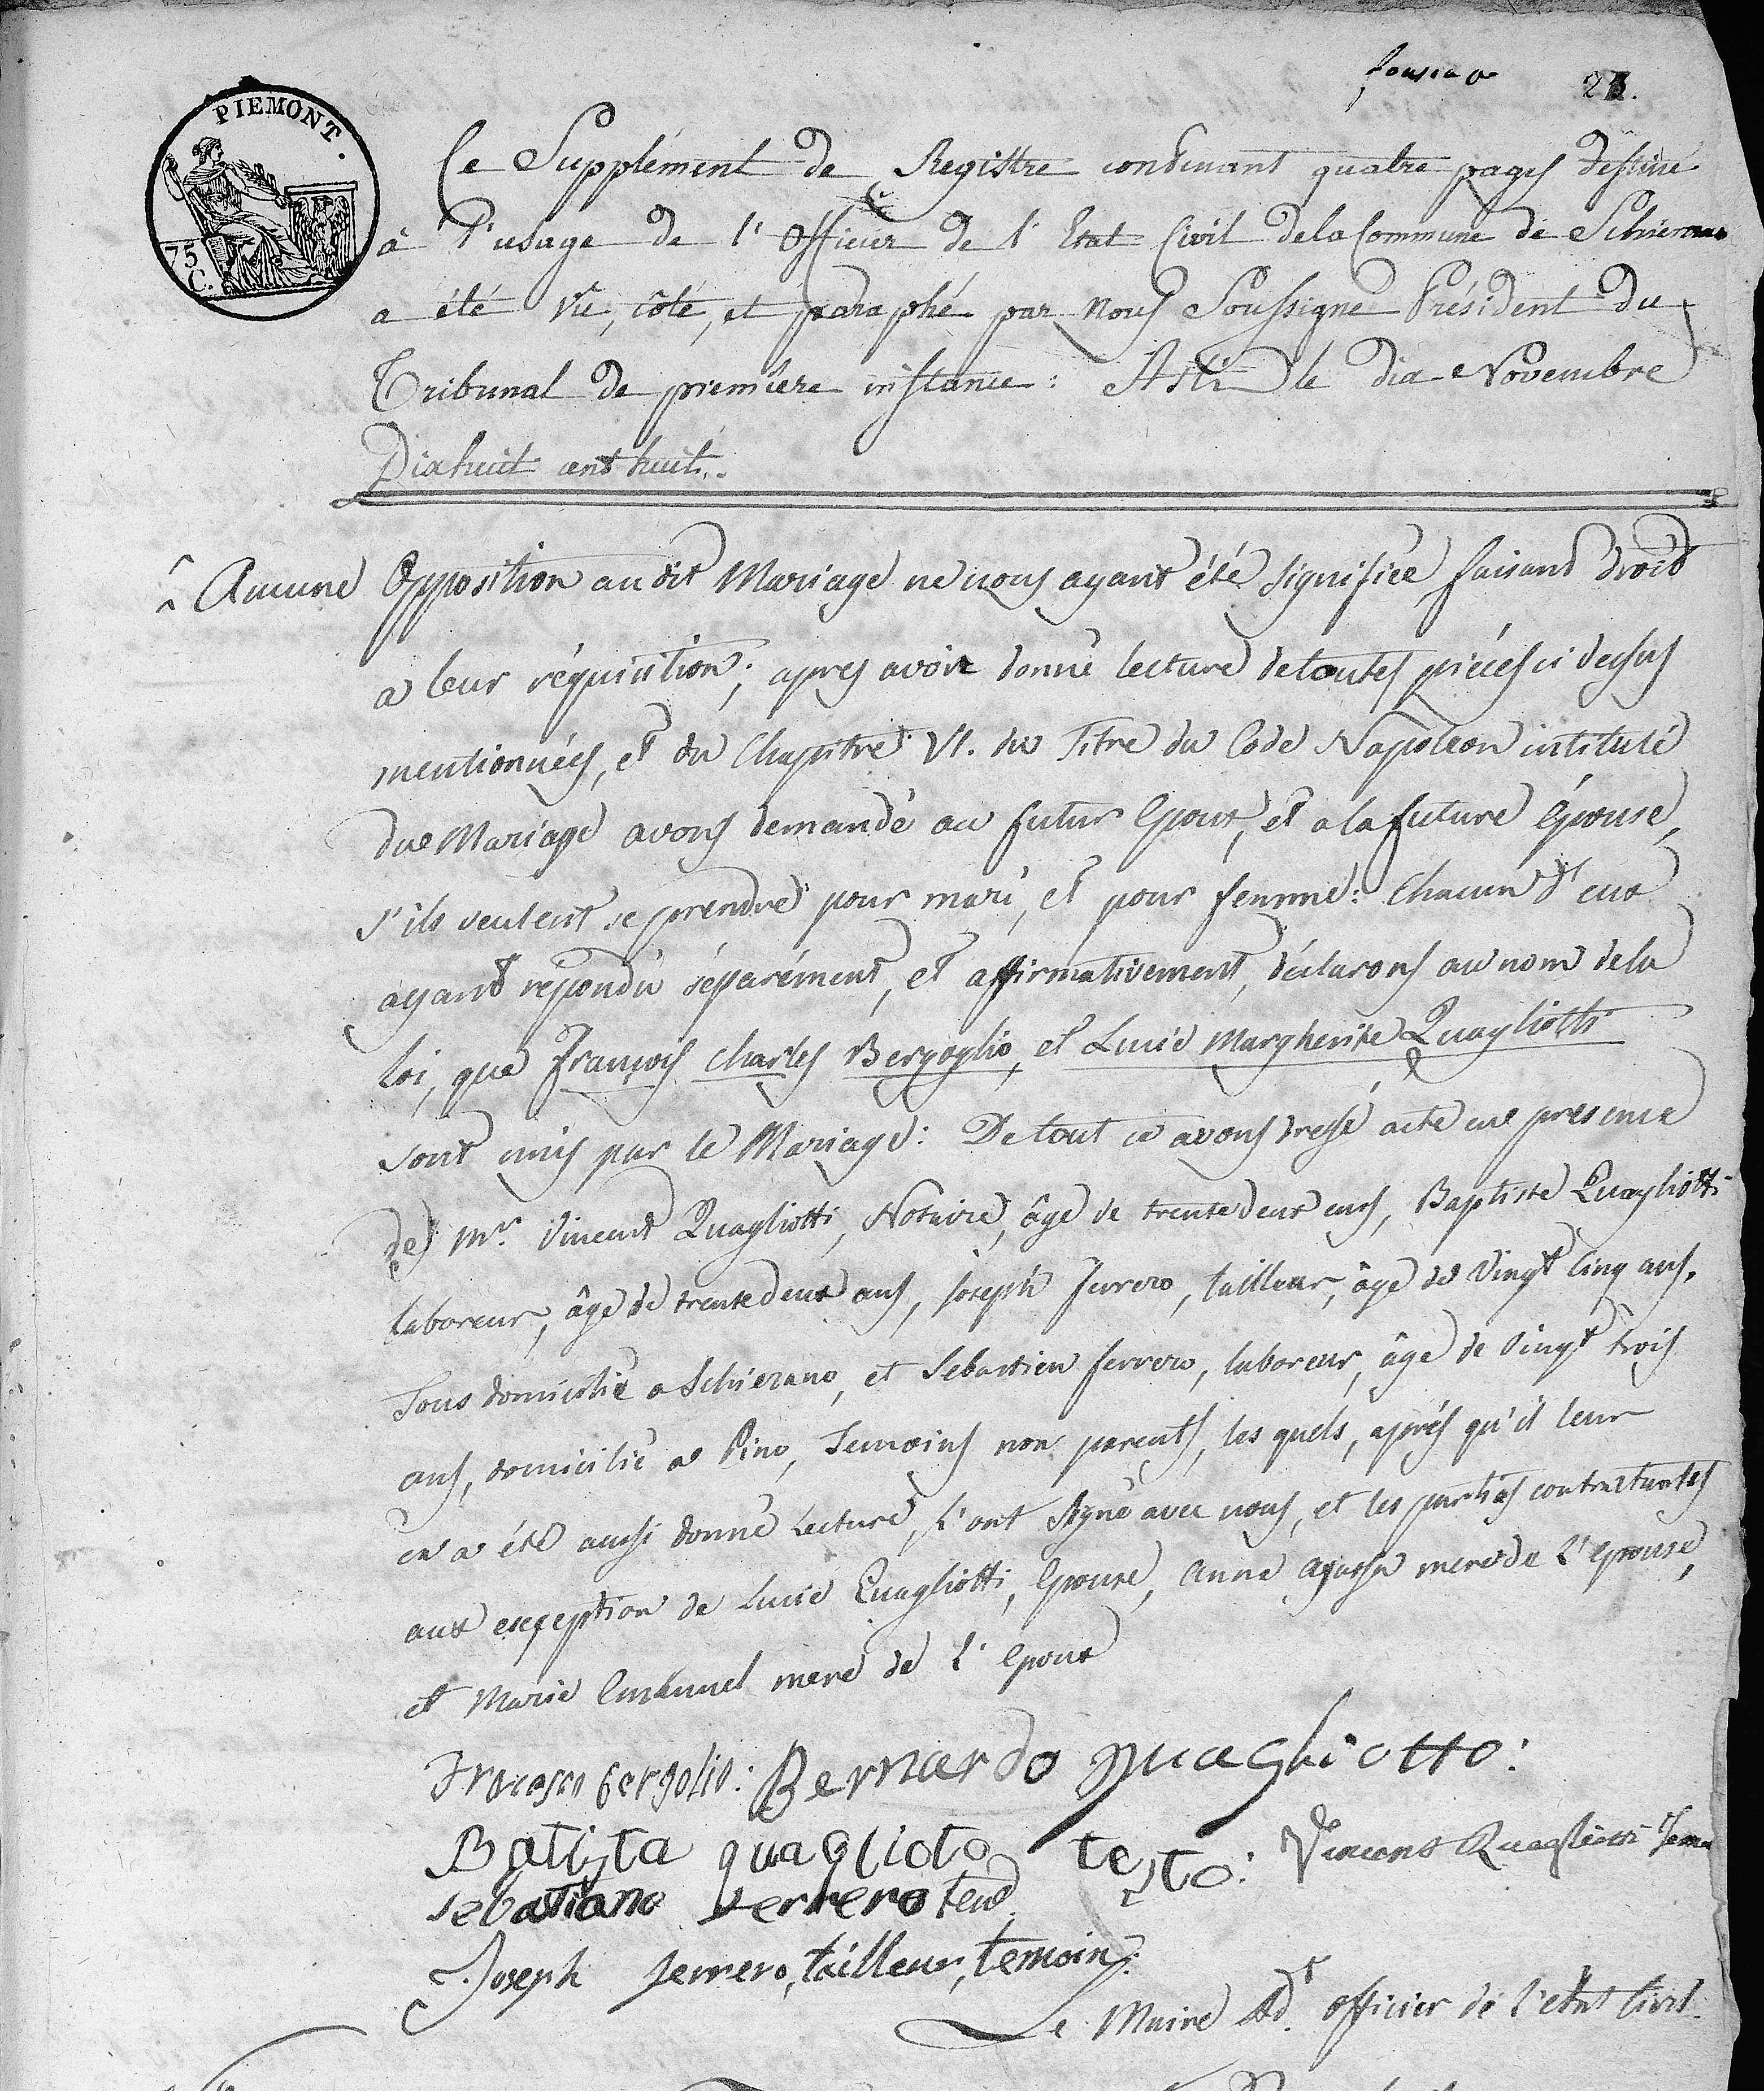 23.
PIEMONT.
75
C.
Ce Supplément de Registre contenant quatre pages destiné
à l'usage de l'Officier de l'Etat Civil de la Commune de Schierano
a été vu, côté, et paraphé par nous Soussigné Président du
Tribunal de premiere instance: Asti le dix Novembre
Dixhuit cent huit.
Aucune Opposition au dit Mariage ne nous ayant été signifiée, faisant droit
a leur réquisition; apres avoir donné lecture de toutes pièces ci dessus
mentionnées, et du Chapitre VI. du Titre du Code Napoleon intitulé
du Mariage avons demandé au futur Epoux, et a la future épouse,
s'ils veulent se prendre pour mari, et pour femme: Chacun d'eux
ayant répondu séparément, et affirmativement, déclarons au nom de la
loi, que François Charles Bergoglio, et Lucie Margherite Quagliotti
sont unis par le Mariage: De tout ce avons dressé acte en presence
de Mr. Vincent Quagliotti, Notaire, âge de trente deux ans, Baptiste Quagliotti
laboreur, âge de trente deux ans, Joseph Ferrero, tailleur, âge de Vingt Cinq ans,
Tous domicilié a Schierano, et Sebastien Ferrero, laboreur, âge de Vingt trois
ans, domicilié a Pino, Temoins non parents, les quels, aprés qu'il leur
en a été aussi donné Lecture, l'ont signé avec nous, et les parties contractantes
aux exception de Lucie Quagliotti, Epouse, Anne mere de L'epouse,
et Marie Emanuel mere de L'epoux
Francesco Bergolio: Bernardo Quagliotto:
Batista quaglioto testo: Vincent Quagliotti
sebastiano Ferrero
Joseph ferrero, tailleur, temoin.
Le Maire Adt. officier de l'etat Civil.